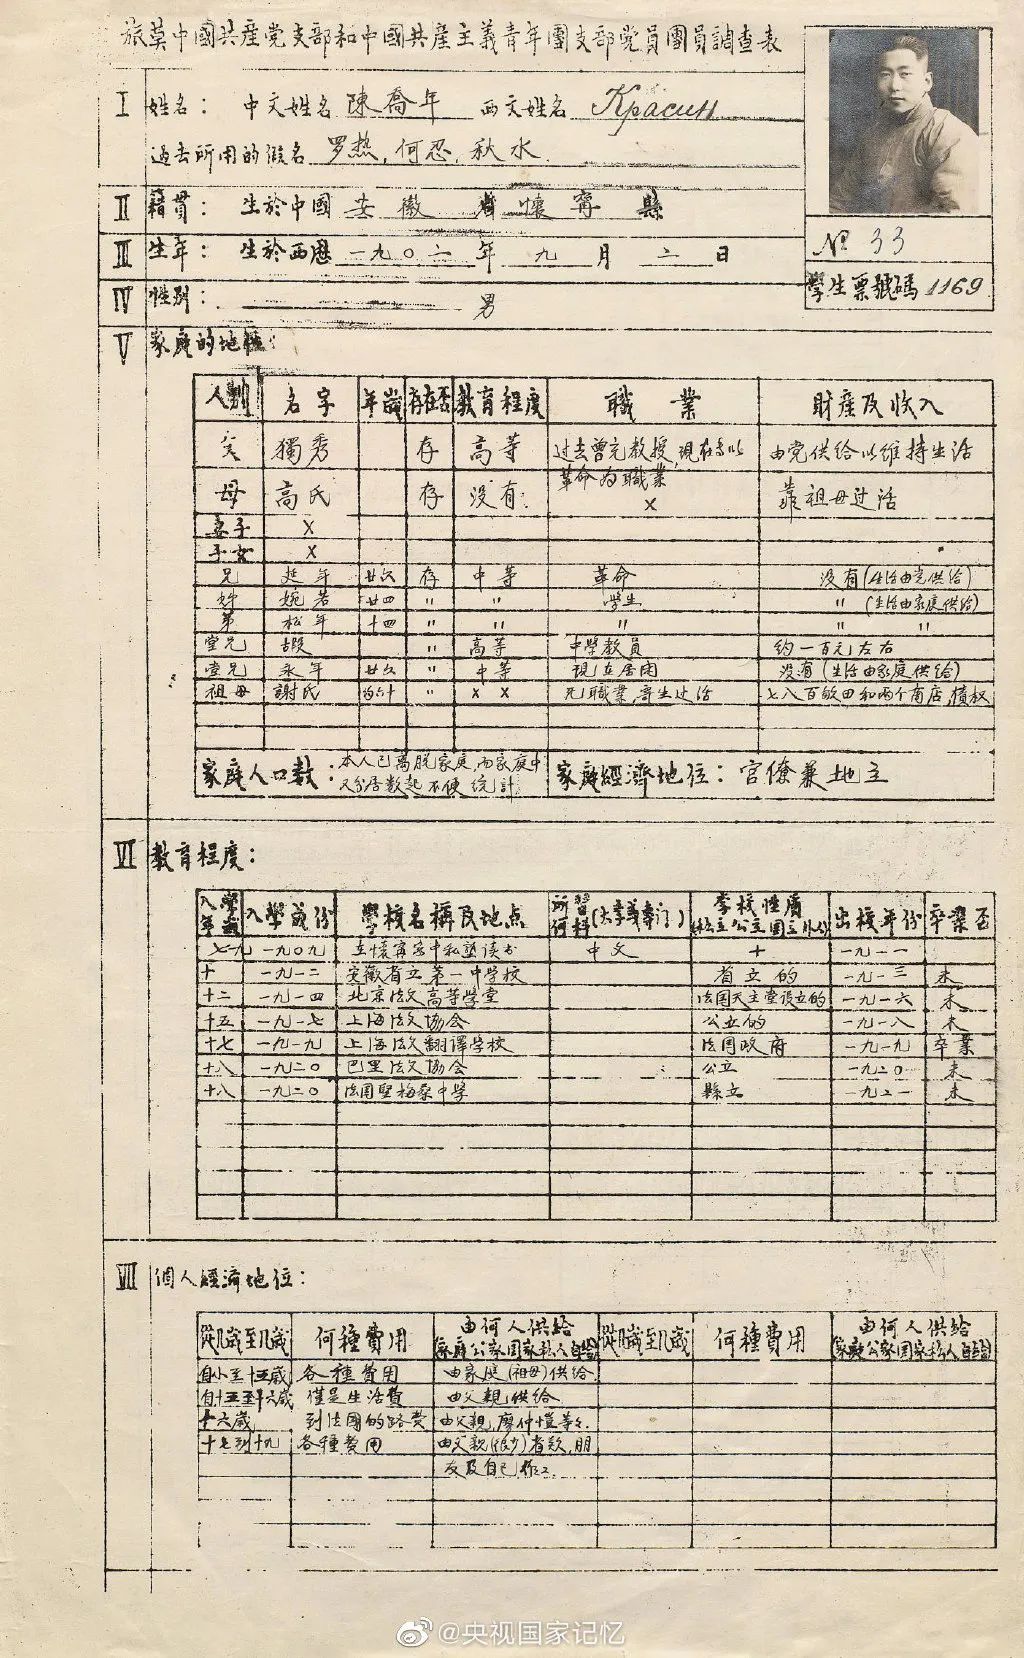 旅莫中國共産党支部和中國共産主義青年團支部党員團員調查表
I 姓名： 中文姓名 陳喬年 西文姓名 Красин
过去所用的假名 罗热，何忍，秋水．
II 籍貫： 生於中國 安徽 省 懷寧 縣
III 生年： 生於西歷 一九〇二 年 九 月 二 日
IV 性别： 男
№ 33
學生票號碼 1169
V 家庭的地位：
人别 名字 年歲 存在否 教育程度 職業 財產及收入
父 獨秀 存 高等 过去曾充教授，現在多以革命为職業 由党供给以维持生活
母 高氏 存 没有． × 靠祖母过活
妻子 ×
子女 ×
兄 延年 廿六 存 中等 革命 没有(生活由党供给)
姊 婉若 廿四 〃 〃 学生 〃 (生活由家庭供给)
弟 松年 十四 〃 〃 〃 〃 〃
堂兄 遐 〃 高等 中學教員 约一百元左右
堂兄 永年 廿六 〃 中等 現在居闲 没有(生活由家庭供给)
祖母 謝氏 约六十 〃 × × 无職業，寄生过活 七八百畝田和两个商店，債权
家庭人口数： 本人已离脱家庭，而家庭中又分居数起不便统計 家庭經濟地位：官僚兼地主
VI 教育程度：
入學年歲 入學歲份 學校名稱及地点 所習何科(大学或專门) 学校性质(私立公立国立外人) 出校年份 卒業否
七-九 一九〇九 在懷寧家中私塾读书 中文 + 一九一一
十 一九一二 安徽省立第一中学校 省立的 一九一三 未
十二 一九一四 北京法文高等学堂 法国天主堂设立的 一九一六 未
十五 一九一七 上海法文協会 公立的 一九一八 未
十七 一九一九 上海法文翻譯学校 法国政府 一九一九 卒業
十八 一九二〇 巴里法文協会 公立 一九二〇 未
十八 一九二〇 法国聖梅桑中学 縣立 一九二一 未
VII 個人經濟地位：
從几歲至几歲 何種費用 由何人供给(家庭公家国家私人自给) 從几歲至几歲 何種費用 由何人供给(家庭公家国家私人自给)
自小至十五歲 各種費用 由家庭(祖母)供给
自十五至十六歲 僅是生活費 由父親供给
十六歲 到法国的路费 由父親，廖仲愷等等．
十七到十九 各種費用 由父親(很少)者数，朋
友及自己作工．
@央视国家记忆